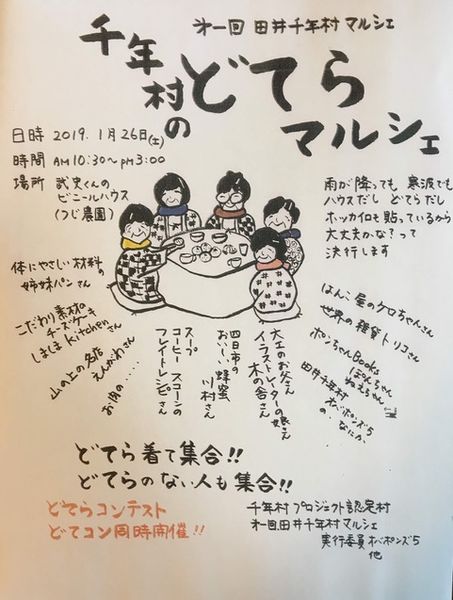 才一回 田井千年村 マルシェ
千年村の
どてら
マルシェ
日時 2019.1月26日(土)
時間 AM10:30~PM3:00
場所 武史くんの
ビニールハウス
(つじ農園)
雨が降っても 寒波でも
ハウスだし どてらだし
ホッカイロも貼っているから
大丈夫かな?って
決行します
体にやさしい材料の
姉妹パンさん
こだわり素材の
チーズケーキ
しましまkitchenさん
山の上の名店
えんがわさん
お肉の....
スープ
コーヒー スコーンの
フレイトレシピさん
四日市の
おいしい蜂蜜
川村さん
大工のお父さん
イラストレーターの娘さん
木の舎さん
はんこ屋のケロちゃんさん
世界の雑貨トリコさん
ポンちゃんBooks
ぽんちゃん
ねえちゃん
田井千年村
オバポンズ5
の、なにか
どてら着て集合!!
どてらのない人も集合!!
どてらコンテスト
どてコン同時開催!!
千年村プロジェクト認定村
才一回.田井千年村マルシェ
実行委員オバポンズ5
他